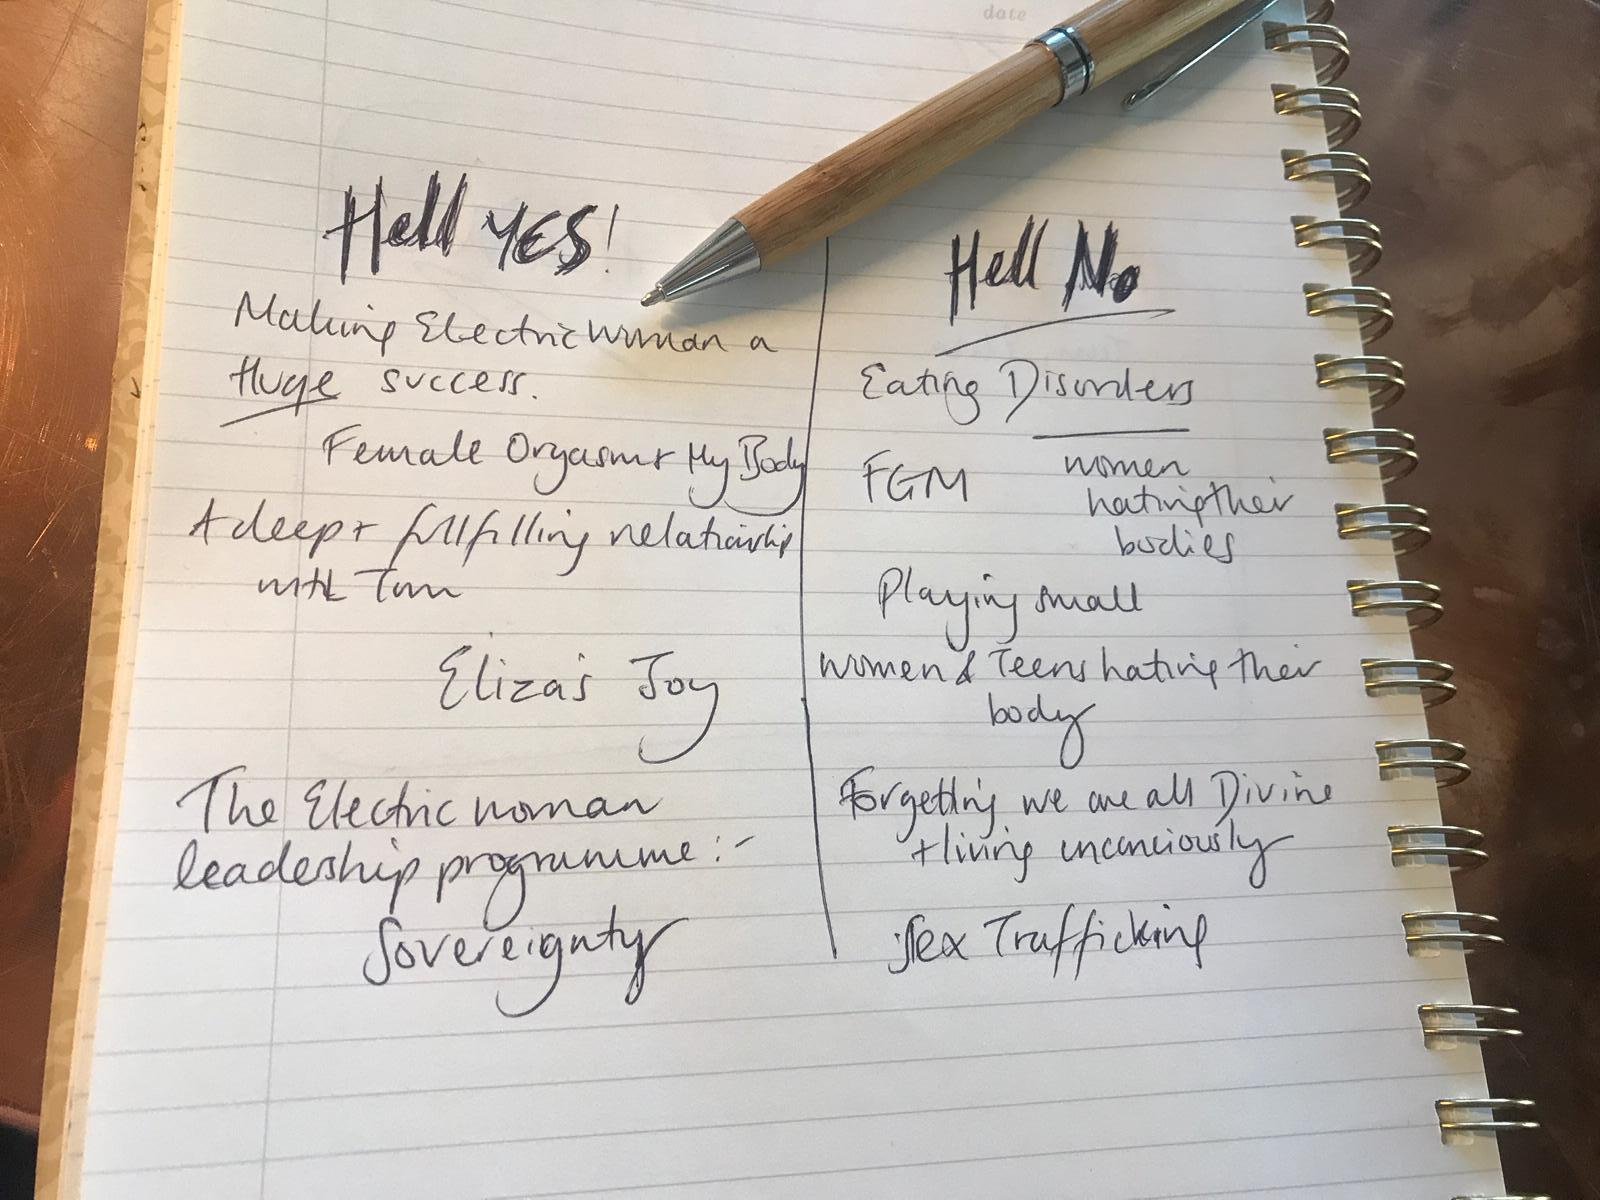 date
Hell YES!
Making Electric Woman a
Huge success.
Female Orgasm + My Body
A deep + fullfilling relationship
with Tom
Eliza's Joy
The Electric woman
leadership programme :-
Sovereignty
Hell No
Eating Disorders
FGM
women
hating their
bodies
Playing small
women & Teens hating their
body
Forgetting we are all Divine
+ living unconciously
Sex Trafficking